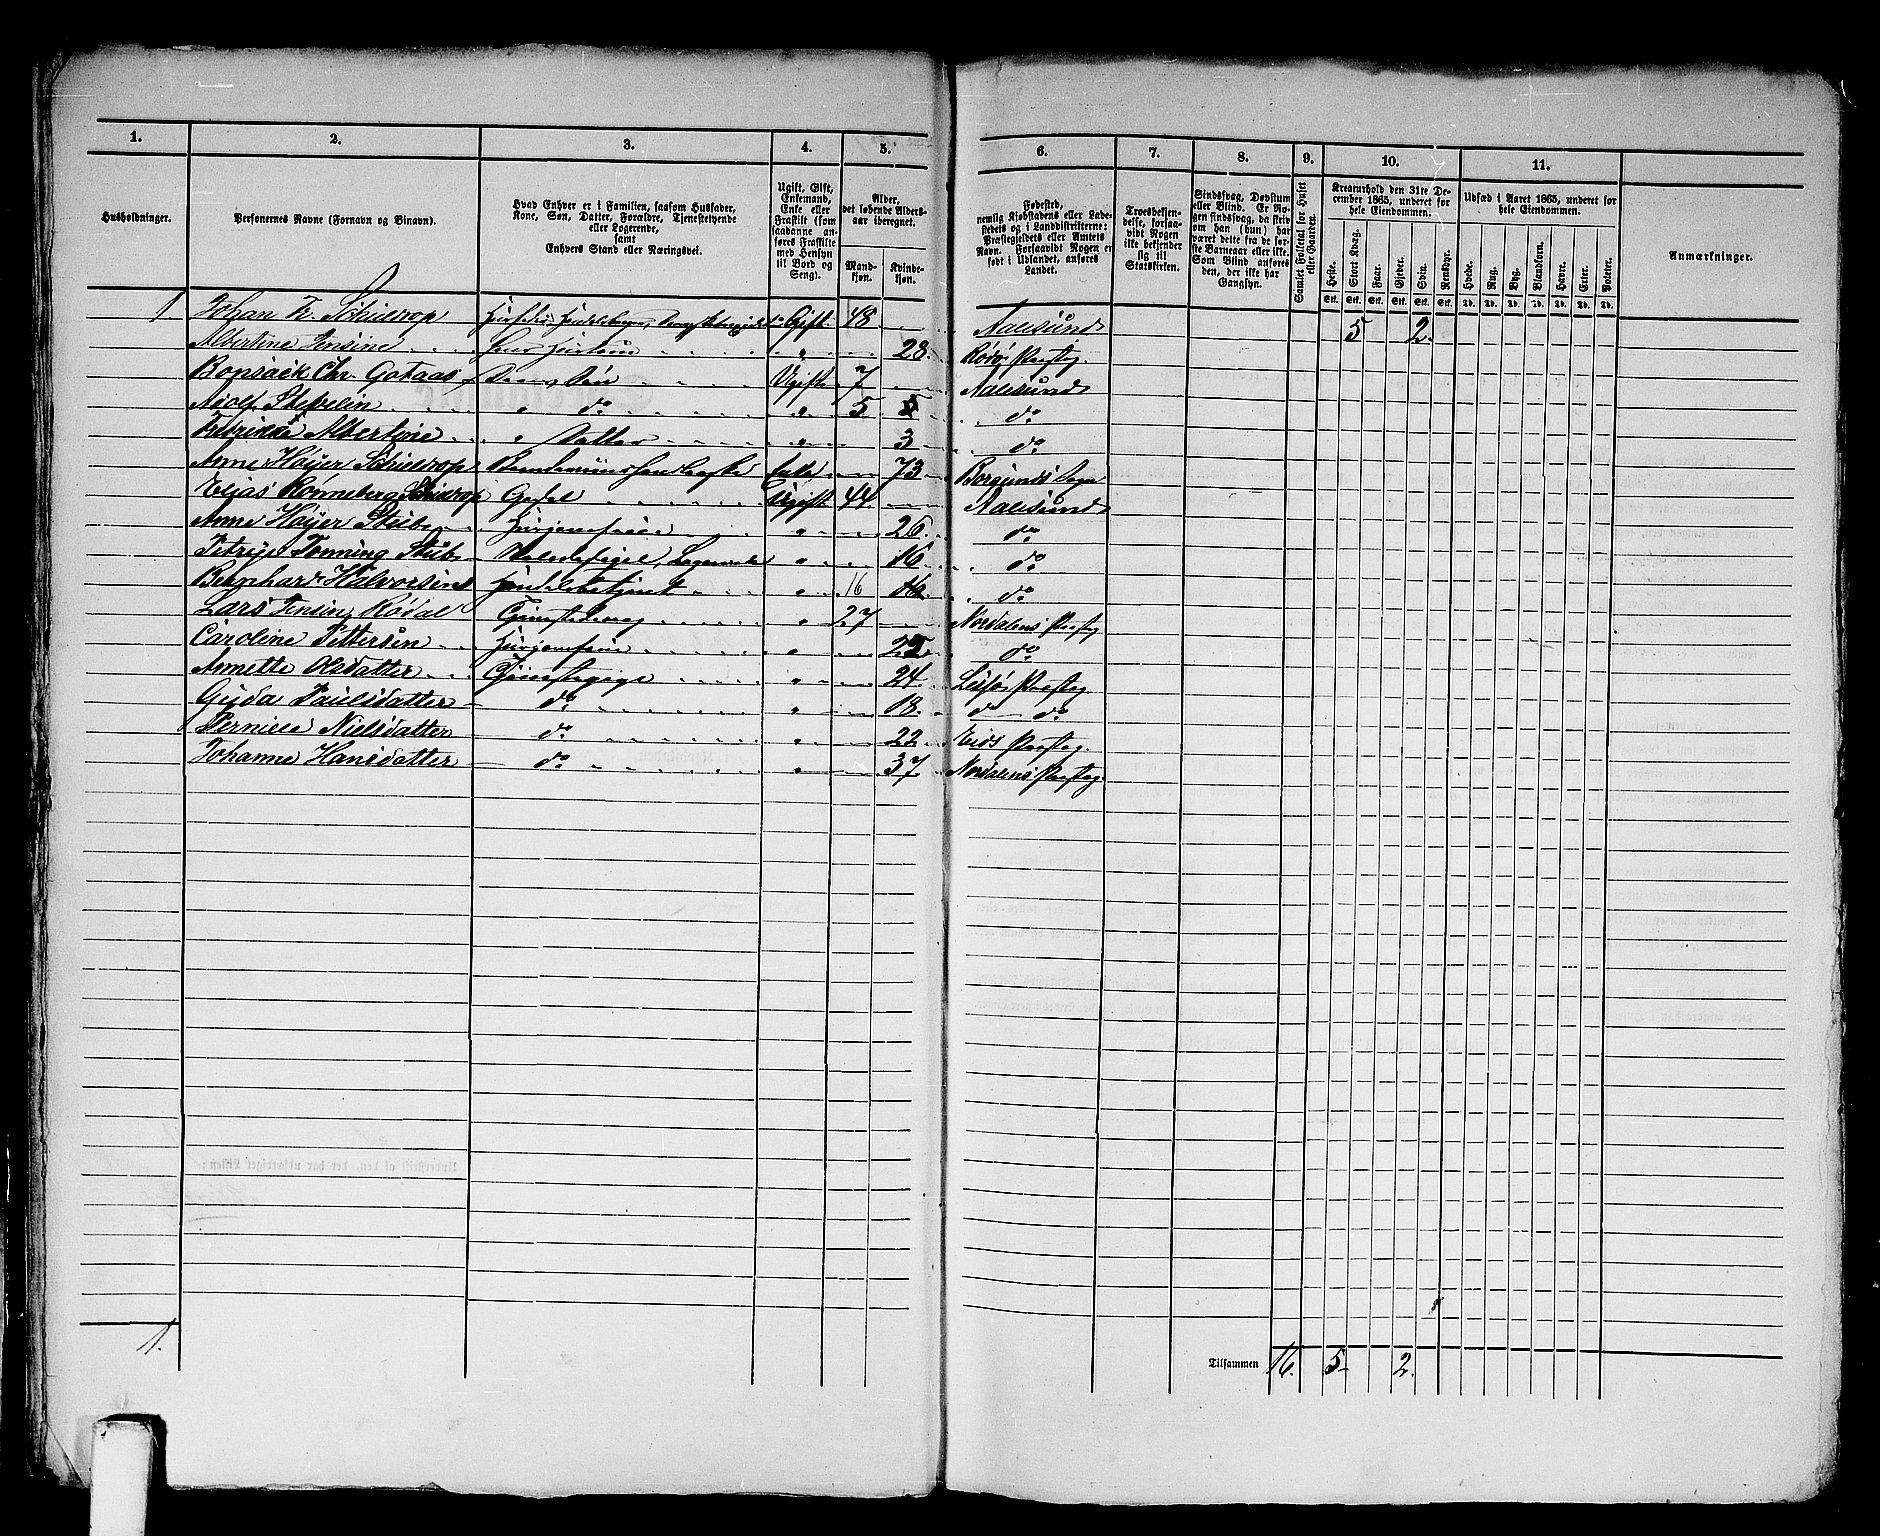 1. 2. 3. 4. 5. 6. 7. 8. 9. 10. 11.
Husholdninger.
Personernes Navne (Fornavn og Binavn).
Hvad Enhver er i Familien, saasom Husfader, Kone, Søn, Datter, Forældre, Tjenestetyende eller Logerende, samt Enhvers Stand eller Næringsvei.
Ugift, Gift, Enkemand, Enke eller Fraskilt (som saadanne anføres Fraskilte med Hensyn til Bord og Seng).
Alder, det løbende Aldersaar iberegnet.
Mandkjøn. Kvindekjøn.
Fødested, nemlig Kjøbstadens eller Ladestedets og i Landdistrikterne: Præstegjeldets eller Amtets Navn. Forsaavidt Nogen er født i Udlandet, anføres Landet.
Troesbekjendelse, forsaavidt Nogen ikke bekjender sig til Statskirken.
Sindssvag, Døvstum eller Blind. Er Nogen sindssvag, da skriv om han (hun) har været dette fra de første Barneaar eller ikke. Som Blind anføres den, der ikke har Gangsyn.
Samlet Folketal for Huset eller Gaarden.
Kreaturhold den 31te December 1865, underet for hele Eiendommen.
Heste. Stort Kvæg. Faar. Gjeder. Sviin. Rensdyr.
Udsæd i Aaret 1865, underet for hele Eiendommen.
Hvede. Rug. Byg. Blandkorn. Havre. Erter. Poteter.
Anmærkninger.
1. Johan F. Schieldrop Gift 48 Aalesund 5 2.
Albertine Jensine " 28. Rødø Præsteg.
Bonsack Chr. Gotaas Deres Søn Ugift 7 Aalesund
Adolf Stephelin " do " 5 do
Fredrikke Albertine " Datter " 3 do
Anne Høyer Schieldrop Enke 73 Borgunds Sogn
Elias Rønneberg Schieldrop Ugift 44. Aalesund
Anne Høyer Stub " 26. do
Petrije Tønning Stub " 16 do
Bernhard Halvorsen Handelsbetjent " 16 do
Lars Jensen Rødal " 27 Nordalens Præsteg
Caroline Pettersen " do
Annette Olsdatter Tjenestepige " 24. Præsteg.
Gujda Paulsdatter do " 18. do do
Pernille Nielsdatter do " 22 Eids Præsteg.
Johanne Hansdatter do " 37 Nordalens Præsteg
1. Tilsammen 16. 5 2.